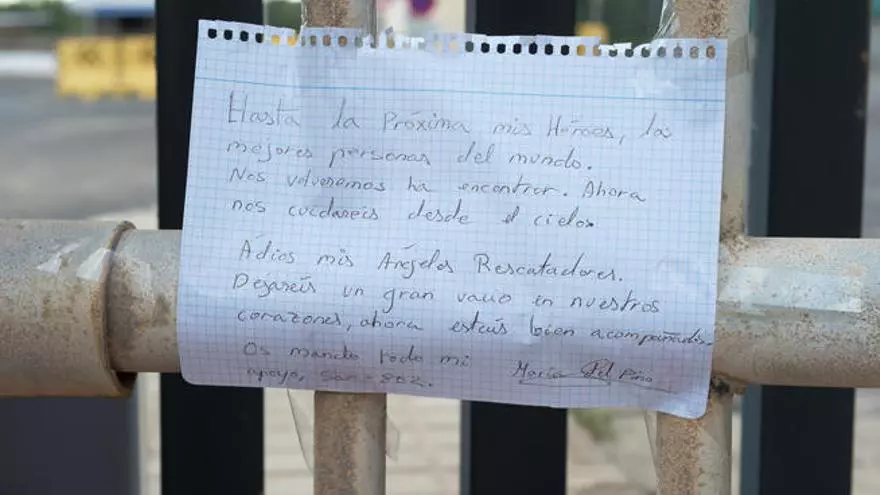 Hasta la Próxima mis Héroes, las
mejores personas del mundo.
Nos volveremos ha encontrar. Ahora
nos cuidareis desde el cielo.
Adios mis Ángeles Rescatadores.
Dejareis un gran vacio en nuestros
corazones, ahora estais bien acompañados.
Os mando todo mi
apoyo, sar-802.
María del Pino